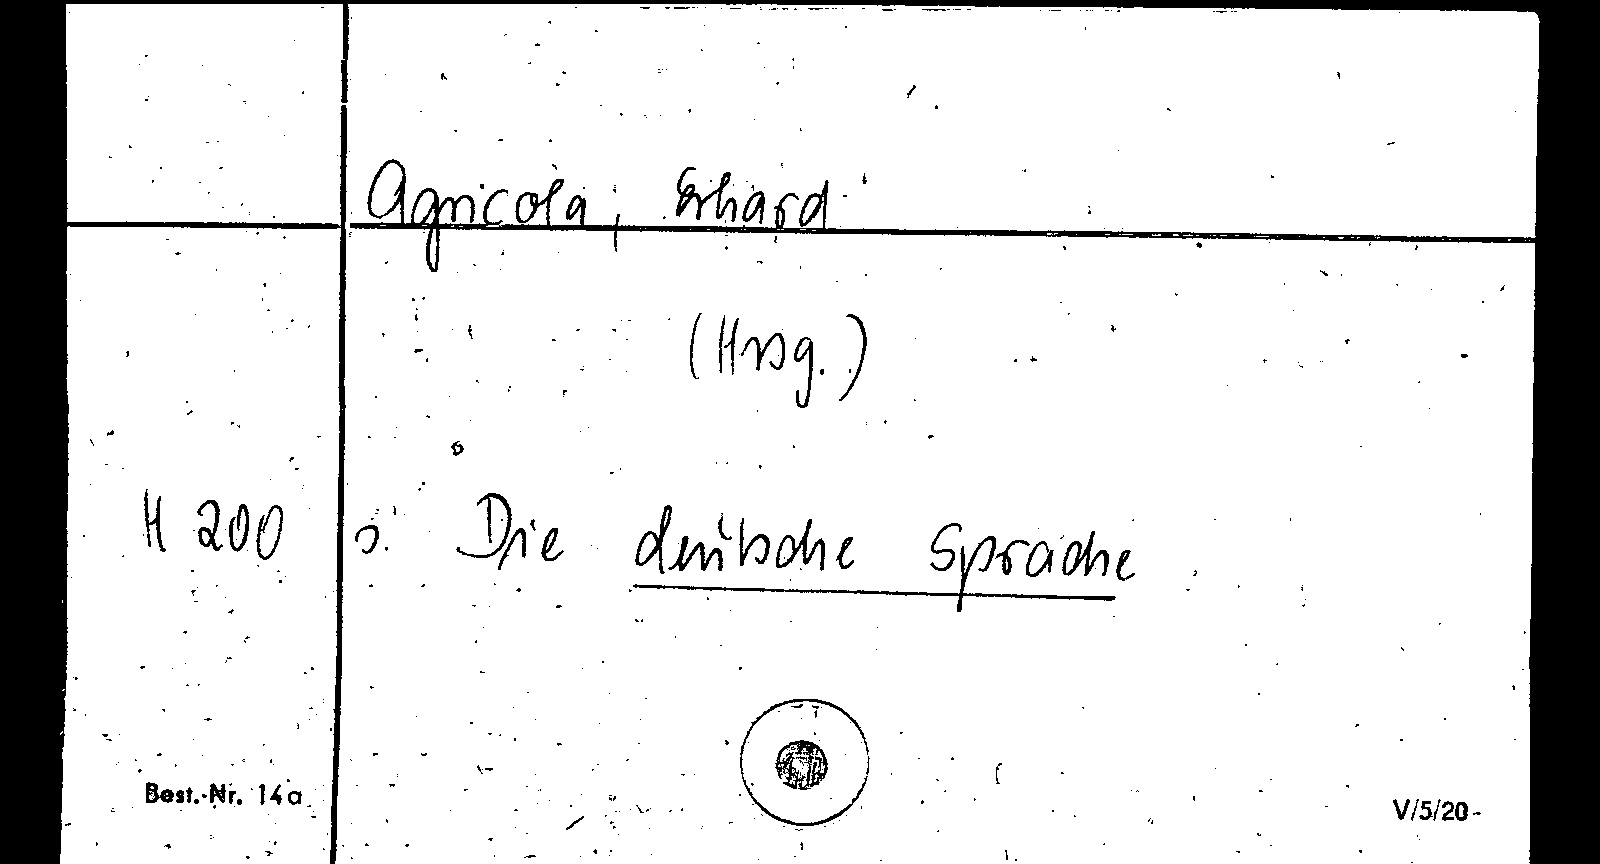 Agricola, Erhard
(Hrsg.)
H 200 s. Die deutsche Sprache
Best.-Nr. 14a
V/5/20